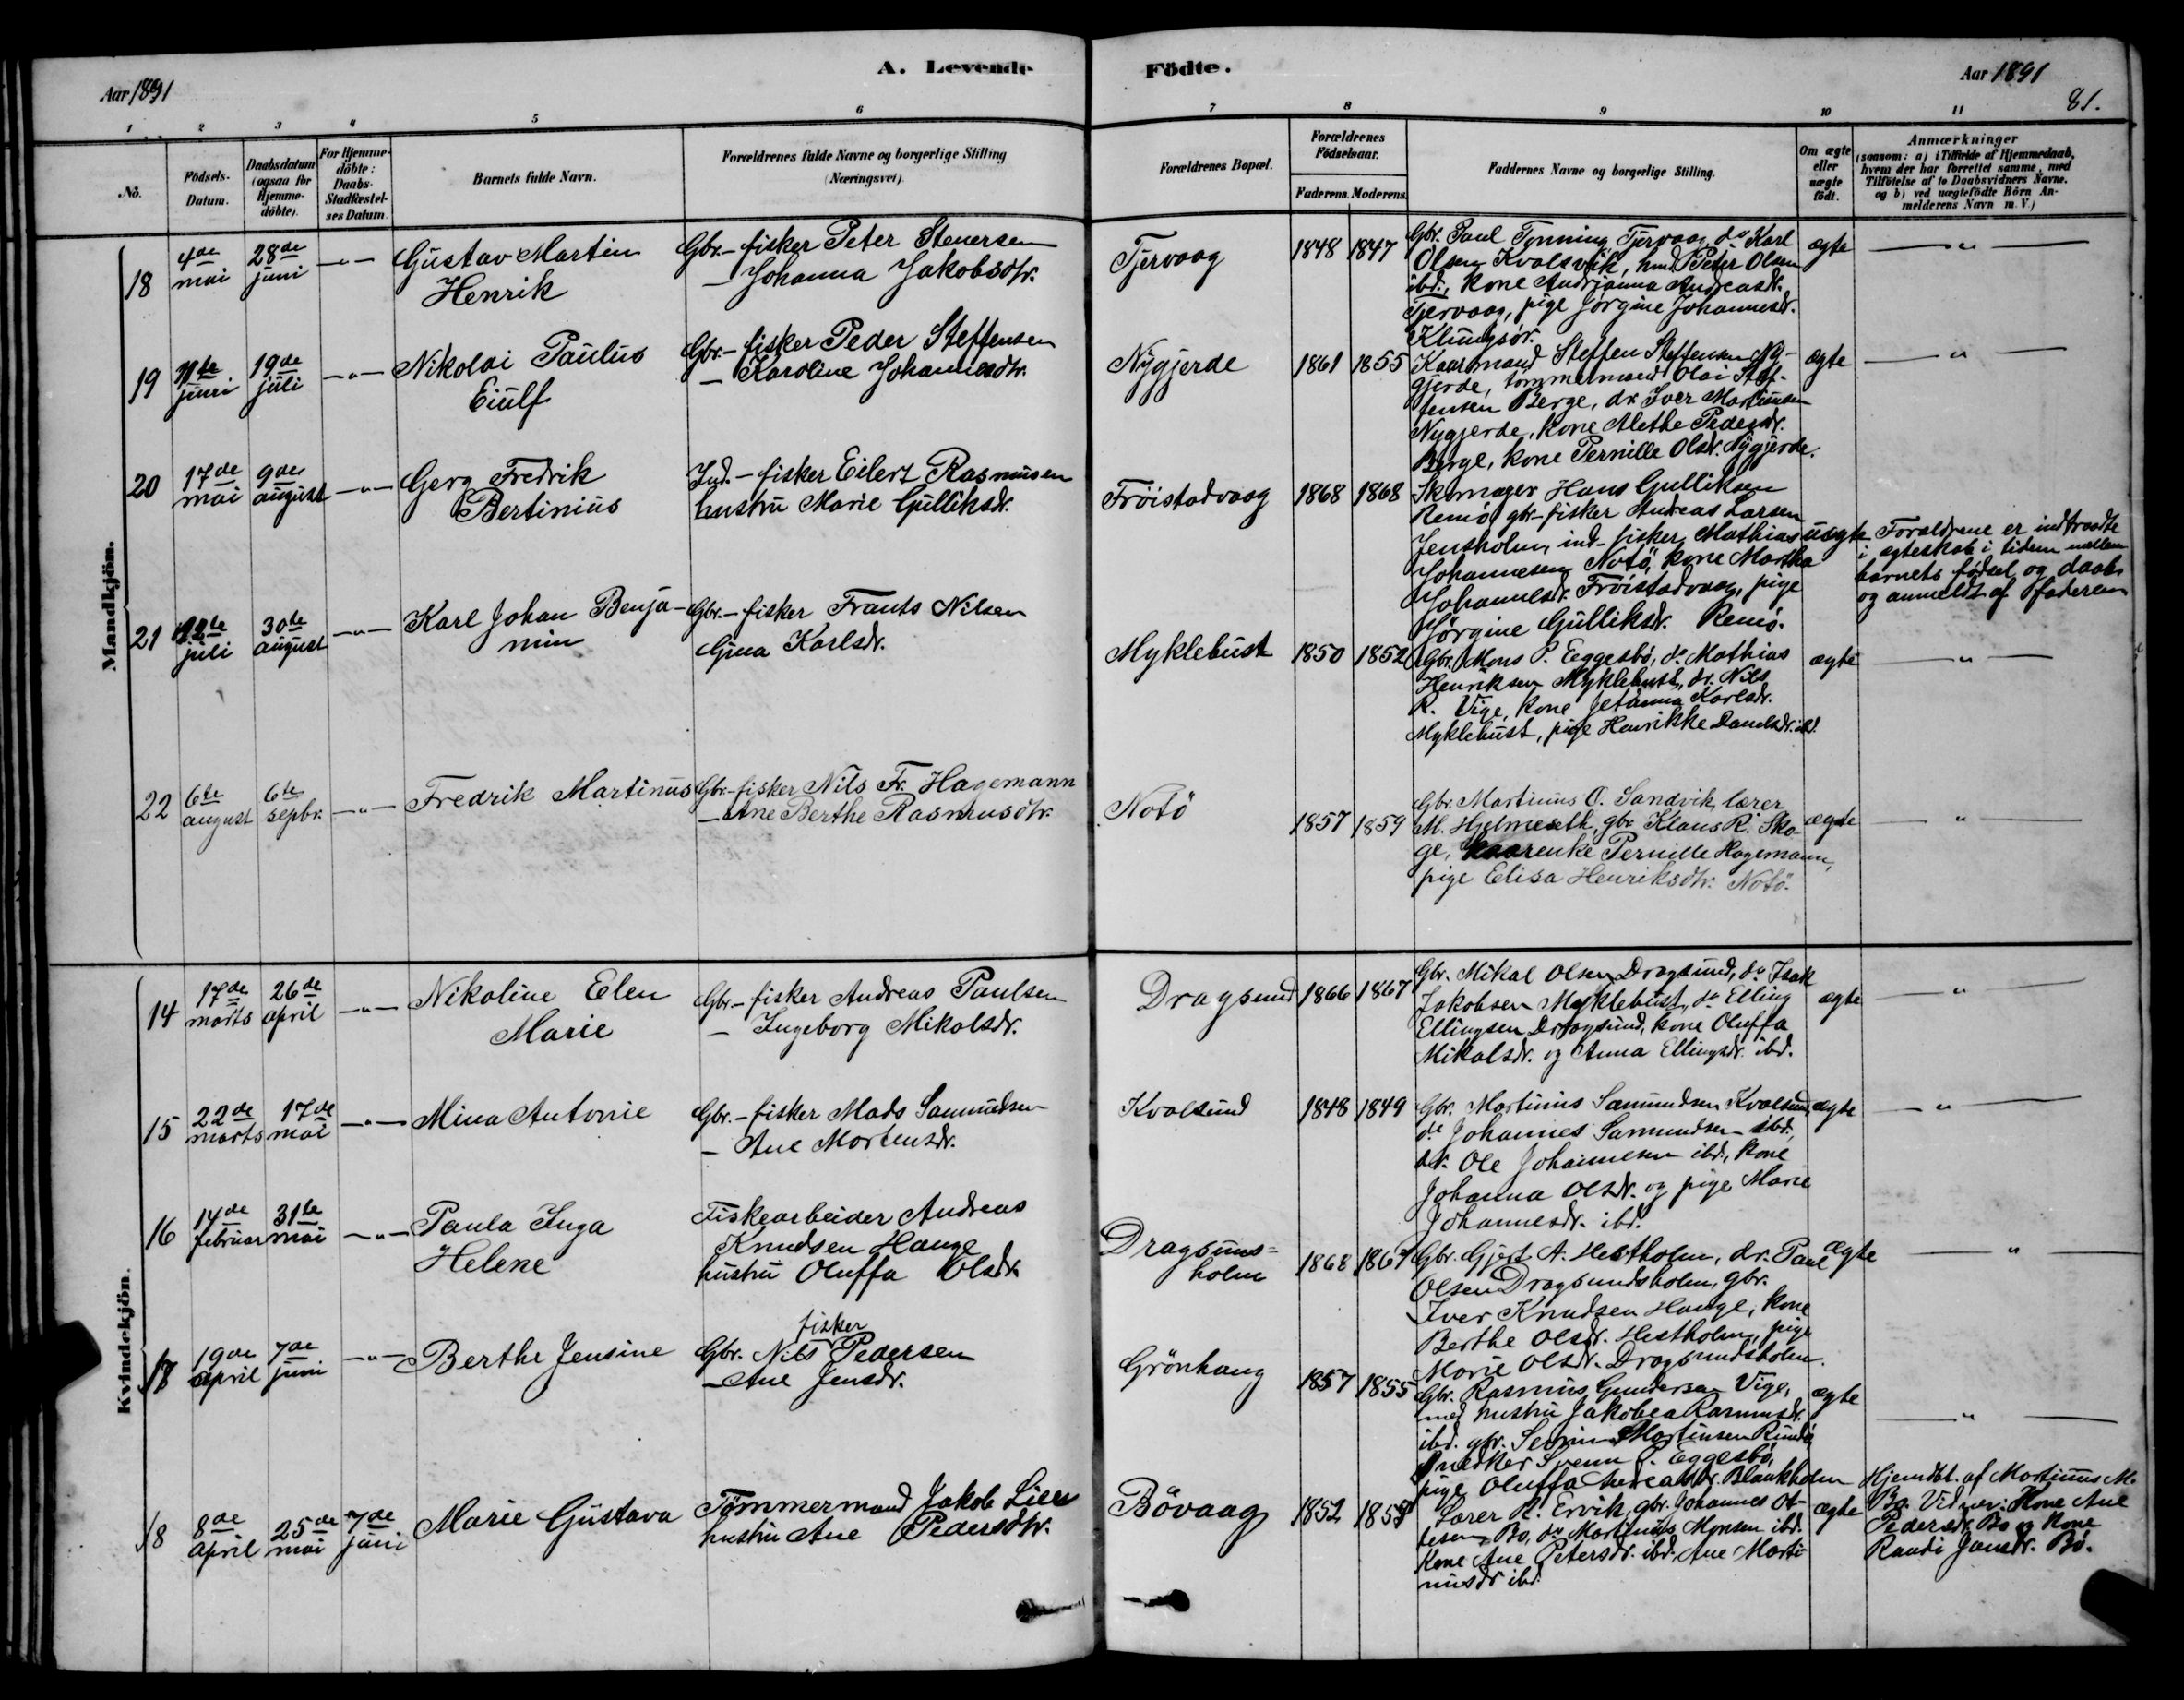 A. Levende Födte.
Aar 1891
Aar 1891
81.
1 2 3 4 5 6 7 8 9 10 11
No.
Födsels-Datum.
Daabsdatum (ogsaa for Hjemme-döbte).
For Hjemme-döbte: Daabs-Stadfæstel-ses Datum.
Barnets fulde Navn.
Forældrenes fulde Navne og borgerlige Stilling
(Næringsvei).
Forældrenes Bopæl.
Forældrenes Födselsaar.
Faderens. Moderens.
Faddernes Navne og borgerlige Stilling.
Om ægte eller uægte födt.
Anmærkninger
(saasom: a) i Tilfælde af Hjemmedaab,
hvem der har forrettet samme, med
Tilföielse af to Daabsvidners Navne.
og b) ved uægtefödte Börn An-
melderens Navn m. V.)
Mandkjön.
18 4de mai 28de juni -"- Gustav Martin
Henrik
Gbr.- fisker Peter Stenersen
- Johanna Jakobsdtr.
Tjervaag 1848 1847
Gbr. Paul Tonning Tjervaag, do Karl
Olsen Kvalsvik, Peter Olsen
ibd., kone Andrianna Andreasdr.
Tjervaag, pige Jörgine Johannesdr.
Klungsör.
ægte -"-
19 juni 19de juli -"- Nikolai Paulus
Eiulf
Gbr.- fisker Peder Steffensen
- Karoline Johannesdtr.
Nygjerde 1861 1855
Kaarmand Steffen Steffensen Ny-
gjerde, tömmermand Olai Stef-
fensen Berge, dr. Iver Martinusen
Nygjerde, kone Alethe Pedersdr.
Berge, kone Pernille Olsdr. Nygjerde.
ægte -"-
20 17de mai 9de august -"- Gerg Fredrik
Bertinius
Ind.- fisker Eilert Rasmusen
hustru Marie Gulliksdr.
Fröistadvaag 1868 1868
Skomager Hans Gulliksen
Remö, gbr-fisker Andreas Larsen
Jensholm, ind-fisker Mathias
Johannesen Notö, kone Martha
Johannesdr. Fröistadvaag, pige
Jörgine Gulliksdr. Remö.
uægte
Forældrene er indtraadte
i ægteskab i tiden mellem
barnets födsel og daab.
og anmeldt af faderen
21 12te juli 30te august -"- Karl Johan Benja-
min
Gbr.- fisker Frants Nilsen
Gina Karlsdr.
Myklebust 1850 1852
Gbr. Mons P. Eggesbö, do Mathias
Henriksen Myklebust, dr. Nils
R. Vige, kone Jetanna Karlsdr.
Myklebust, pige Henrikke Danielsdr. ibd.
ægte -"-
22 6te august 6te sepbr. -"- Fredrik Martinus
Gbr.-fisker Nils Fr. Hagemann
- Ane Berthe Rasmusdtr.
Notö 1857 1859
Gbr. Martinus O. Sandvik, lærer
M. Hjelmeseth, gbr. Klaus R. Sko-
ge, kaarenke Pernille Hagemann,
pige Elisa Henriksdtr. Notö.
ægte -"-
Kvindekjön.
14 17de marts 26de april -"- Nikoline Elen
Marie
Gbr.- fisker Andreas Paulsen
- Ingeborg Mikalsdr.
Dragsund 1866 1867
Gbr. Mikal Olsen Dragsund, do Isak
Jakobsen Myklebust, do Elling
Ellingsen Dragsund, kone Oluffa
Mikalsdr. og Anna Ellingsdr. ibd.
ægte -"-
15 22de marts 17de mai -"- Mina Antonie
Gbr.- fisker Mads Samundsen
- Ane Mortensdr.
Kvalsund 1848 1849
Gbr. Martinus Samundsen Kvalsund,
do Johannes Samundsen ibd.,
dr. Ole Johannesen ibd., kone
Johanna Olsdr. og pige Marie
Johannesdr. ibd.
ægte -"-
16 14de februar 31te mai -"- Paula Inga
Helene
Fiskearbeider Andreas
Knudsen Hauge
hustru Oluffa Olsdr.
Dragsuns=
holm
1868 1867
Gbr. Gjert A. Hestholm, dr. Paul
Olsen Dragsundsholm, gbr.
Iver Knudsen Hauge, kone
Berthe Olsdr. Hestholm, pige
Marie Olsdr. Dragsundsholm.
ægte -"-
17 19de april 7de juni -"- Berthe Jensine
fisker
Gbr. Nils Pedersen
- Ane Jensdr.
Grönhaug 1857 1855
Gbr. Rasmus Gundersen Vige,
med hustru Jakobea Rasmusdr.
ibd. gbr. Martinsen
snedker Svenn P. Eggesbö,
pige Oluffa Andreasdr. Blankholm
ægte -"-
18 8de april 25de mai 7de juni Marie Gustava
Tömmermand Jakob Lien
hustru Ane Pedersdtr.
Bövaag 1852 1858
Lærer R. Ervik, gbr. Johannes Ot-
tesen Bö, do Martinus Monsen ibd.
kone Ane Petersdr. ibd. Ane Marti-
nusdr. ibd.
ægte
Hjemdbt. af Martinus M.
Bö. Vidner: Kone Ane
Pedersdr. Bö og kone
Randi Jonsdr. Bö.